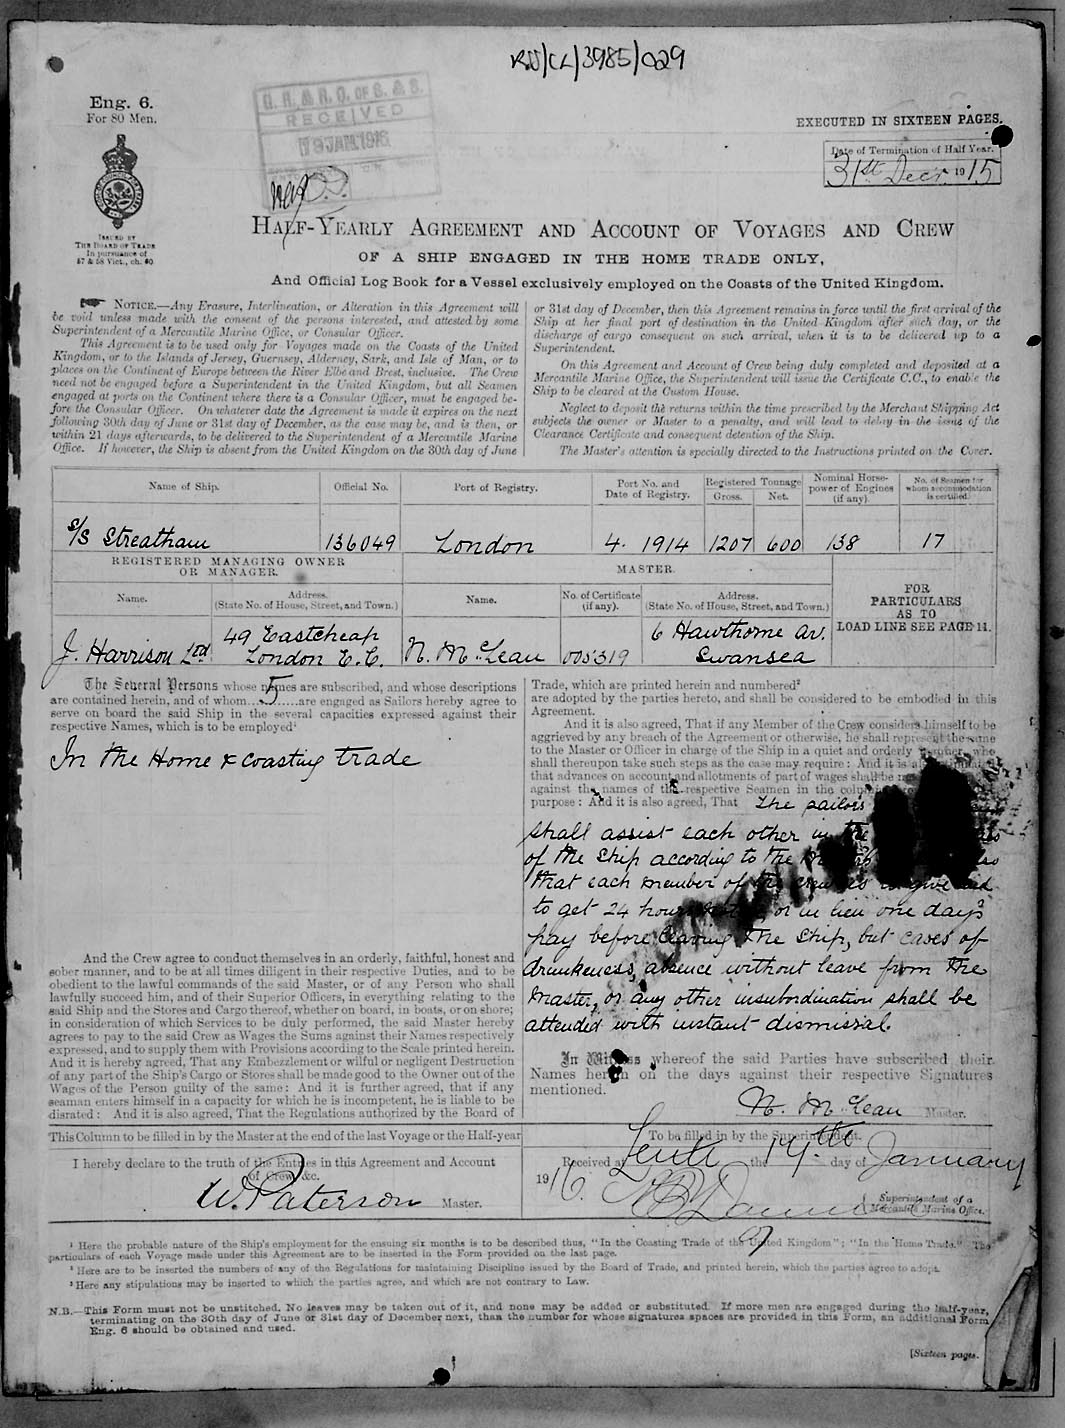 RSS/CL/3985/029
Eng. 6.
For 80 Men.
ISSUED BY
THE BOARD OF TRADE
In pursuance of
57 & 58 Vict., ch. 60.
G. R. & R. O. OF S. & S.
RECEIVED
19 JAN. 1916
EXECUTED IN SIXTEEN PAGES.
Date of Termination of Half Year.
31st Decr. 1915
HALF-YEARLY AGREEMENT AND ACCOUNT OF VOYAGES AND CREW
OF A SHIP ENGAGED IN THE HOME TRADE ONLY,
And Official Log Book for a Vessel exclusively employed on the Coasts of the United Kingdom.
NOTICE.—Any Erasure, Interlineation, or Alteration in this Agreement will
be void unless made with the consent of the persons interested, and attested by some
Superintendent of a Mercantile Marine Office, or Consular Officer.
This Agreement is to be used only for Voyages made on the Coasts of the United
Kingdom, or to the Islands of Jersey, Guernsey, Alderney, Sark, and Isle of Man, or to
places on the Continent of Europe between the River Elbe and Brest, inclusive. The Crew
need not be engaged before a Superintendent in the United Kingdom, but all Seamen
engaged at ports on the Continent where there is a Consular Officer, must be engaged be-
fore the Consular Officer. On whatever date the Agreement is made it expires on the next
following 30th day of June or 31st day of December, as the case may be, and is then, or
within 21 days afterwards, to be delivered to the Superintendent of a Mercantile Marine
Office. If however, the Ship is absent from the United Kingdom on the 30th day of June
or 31st day of December, then this Agreement remains in force until the first arrival of the
Ship at her final port of destination in the United Kingdom after such day, or the
discharge of cargo consequent on such arrival, when it is to be delivered up to a
Superintendent.
On this Agreement and Account of Crew being duly completed and deposited at a
Mercantile Marine Office, the Superintendent will issue the Certificate C.C., to enable the
Ship to be cleared at the Custom House.
Neglect to deposit the returns within the time prescribed by the Merchant Shipping Act
subjects the owner or Master to a penalty, and will lead to delay in the issue of the
Clearance Certificate and consequent detention of the Ship.
The Master's attention is specially directed to the Instructions printed on the Cover.
Name of Ship. Official No. Port of Registry. Port No. and Date of Registry. Registered Tonnage Gross. Net. Nominal Horse-power of Engines (if any). No. of Seamen for whom accommodation is certified.
S/S Streatham 136049 London 4. 1914 1207 600 138 17
REGISTERED MANAGING OWNER OR MANAGER. MASTER.
Name. Address. (State No. of House, Street, and Town.) Name. No. of Certificate (if any). Address. (State No. of House, Street, and Town.)
FOR PARTICULARS AS TO LOAD LINE SEE PAGE 11.
J. Harrison Ltd 49 Eastcheap London E.C. N. McLean 005319 6 Hawthorne Av. Swansea
The Several Persons whose names are subscribed, and whose descriptions
are contained herein, and of whom...5...are engaged as Sailors hereby agree to
serve on board the said Ship in the several capacities expressed against their
respective Names, which is to be employed¹
In the Home & coasting trade
And the Crew agree to conduct themselves in an orderly, faithful, honest and
sober manner, and to be at all times diligent in their respective Duties, and to be
obedient to the lawful commands of the said Master, or of any Person who shall
lawfully succeed him, and of their Superior Officers, in everything relating to the
said Ship and the Stores and Cargo thereof, whether on board, in boats, or on shore;
in consideration of which Services to be duly performed, the said Master hereby
agrees to pay to the said Crew as Wages the Sums against their Names respectively
expressed, and to supply them with Provisions according to the Scale printed herein.
And it is hereby agreed, That any Embezzlement or wilful or negligent Destruction
of any part of the Ship's Cargo or Stores shall be made good to the Owner out of the
Wages of the Person guilty of the same: And it is further agreed, that if any
seaman enters himself in a capacity for which he is incompetent, he is liable to be
disrated: And it is also agreed, That the Regulations authorized by the Board of
Trade, which are printed herein and numbered²
are adopted by the parties hereto, and shall be considered to be embodied in this
Agreement.
And it is also agreed, That if any Member of the Crew considers himself to be
aggrieved by any breach of the Agreement or otherwise, he shall represent the same
to the Master or Officer in charge of the Ship in a quiet and orderly manner, who
shall thereupon take such steps as the case may require: And it is
that advances on account and allotments of part of wages shall be
against the names of the respective Seamen in the
purpose: And it is also agreed, That The sailors
shall assist each other in the
of the Ship according to the
that each member of the crew is to give and
to get 24 hours or in lieu one day's
pay before leaving the Ship, but cases of
drunkeness, absence without leave from the
Master, or any other insubordination shall be
attended with instant dismissal.
In Witness whereof the said Parties have subscribed their
Names herein on the days against their respective Signatures
mentioned.
N. McLean Master.
This Column to be filled in by the Master at the end of the last Voyage or the Half-year
I hereby declare to the truth of the Entries in this Agreement and Account
of Crew &c.
W. Paterson Master.
To be filled in by the Superintendent.
Received at Leith the 17th day of January
1916.
Superintendent of a
Mercantile Marine Office.
¹ Here the probable nature of the Ship's employment for the ensuing six months is to be described thus, "In the Coasting Trade of the United Kingdom"; "In the Home Trade." The
particulars of each Voyage made under this Agreement are to be inserted in the Form provided on the last page.
² Here are to be inserted the numbers of any of the Regulations for maintaining Discipline issued by the Board of Trade, and printed herein, which the parties agree to adopt.
³ Here any stipulations may be inserted to which the parties agree, and which are not contrary to Law.
N.B.—This Form must not be unstitched. No leaves may be taken out of it, and none may be added or substituted. If more men are engaged during the half-year,
terminating on the 30th day of June or 31st day of December next, than the number for whose signatures spaces are provided in this Form, an additional Form
Eng. 6 should be obtained and used.
[Sixteen pages.